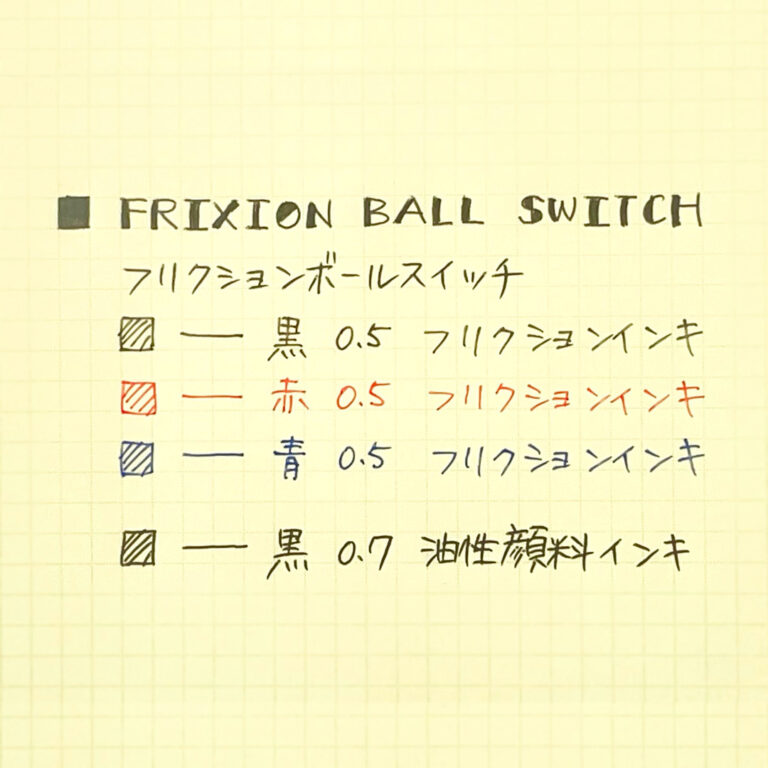 ■ FRIXION BALL SWITCH
フリクションボールスイッチ
▨ — 黒 0.5 フリクションインキ
▨ — 赤 0.5 フリクションインキ
▨ — 青 0.5 フリクションインキ
▨ — 黒 0.7 油性顔料インキ